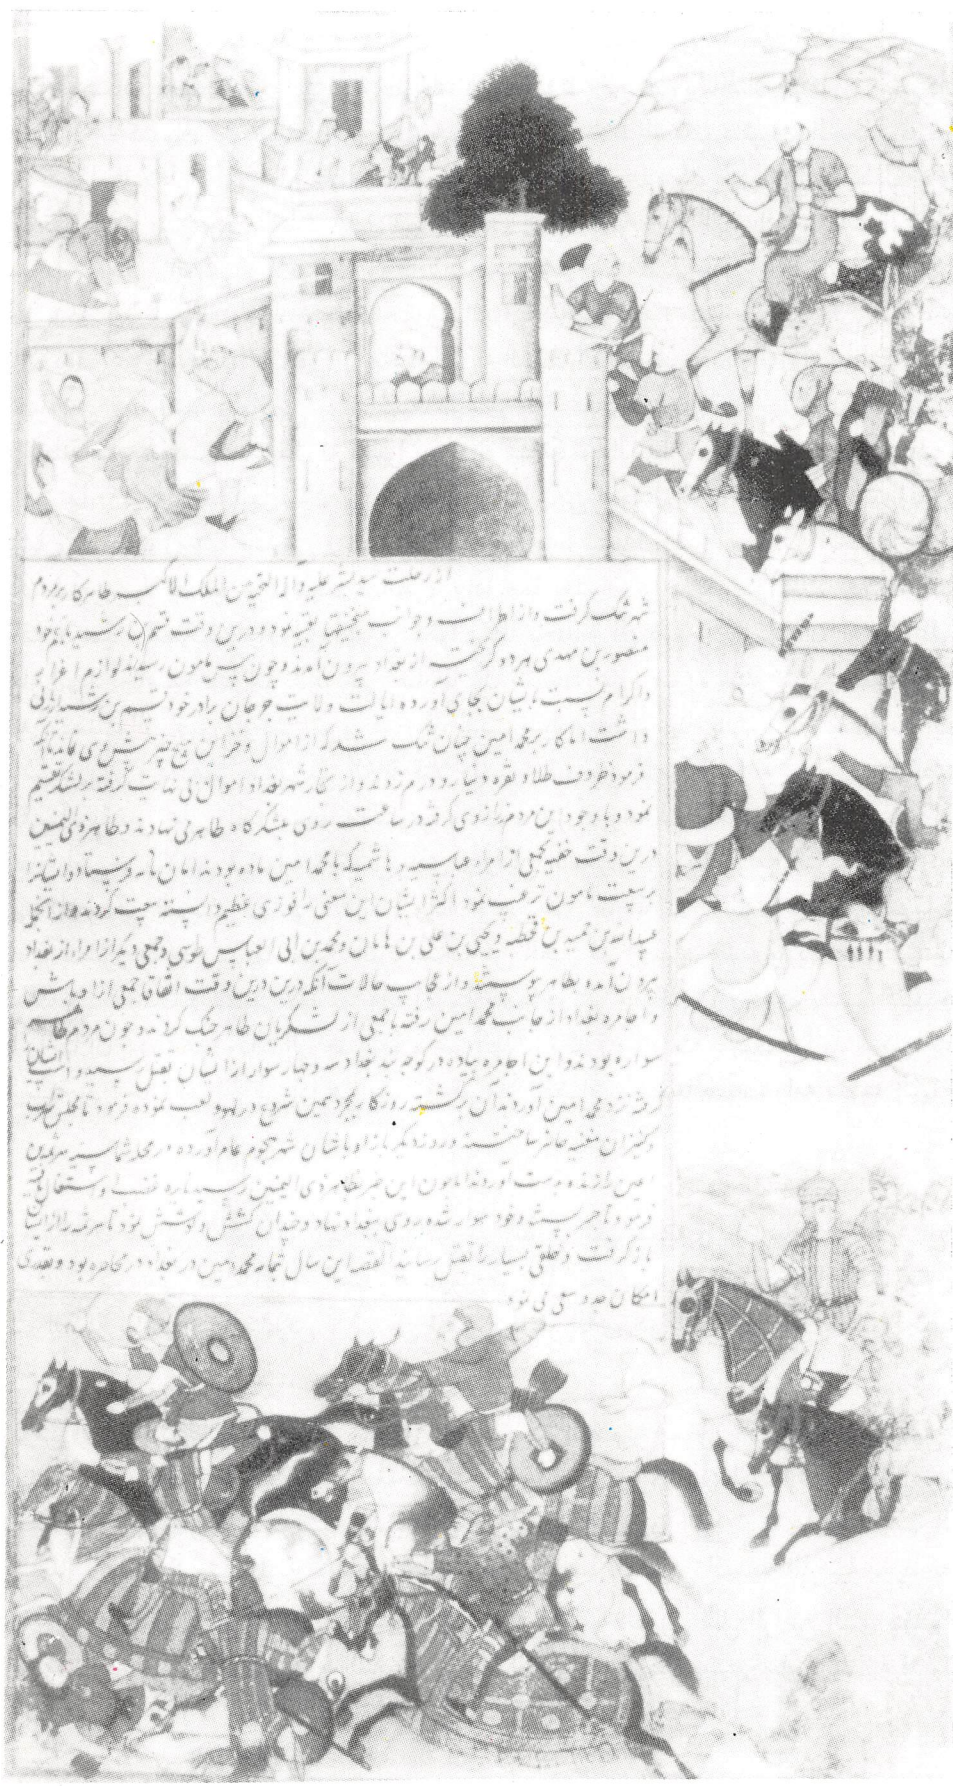 از رحلت سید بشر علیه و آله التحیه من الملک الاکبر طاهر کار بر مردم
شهر تنگ گرفت و از اطراف و جوانب منجنیقها تعبیه نمود و درین وقت قسم بن رشید با عم خود
منصور بن مهدی هر دو گریخته از بغداد بیرون آمدند و چون پیش مامون رسیدند لوازم اعزاز
و اکرام نسبت بایشان بجای آورده ایالت ولایت جرجان برادر خود قسیم بن رشید ارزانی
داشت اما کار بر محمد امین چنان تنگ شد که از اموال و خزاین هیچ چیز پیش وی نماند
فرمود ظروف طلا و نقره دینار و درم زدند و از تجار شهر بغداد اموال بی نهایت گرفته بر لشکر تقسیم
نمود و با وجود این مردم از وی گرفته در ساعت روی بلشکرگاه طاهر می نهادند و طاهر ذی الیمینین
درین وقت خفیه بجمعی از امراء عباسیه و هاشمیه که با محمد امین مانده بودند امان نامه فرستاد و ایشانرا
بر بیعت مامون ترغیب نمود اکثر ایشان این معنی را فوزی عظیم دانسته بیعت کردند و از آنجمله
عبدالله بن حمید بن قحطبه و یحیی بن علی بن ماهان و محمد بن ابی العباس طوسی و جمعی دیگر از امراء از بغداد
بیرون آمده بطاهر پیوستند و از عجایب حالات آنکه درین وقت اتفاقا جمعی از اوباش
و اجامره بغداد از جانب محمد امین رفته با جمعی از لشکریان طاهر جنگ کردند و چون مردم طاهر
سواره بودند و این اجامره پیاده در کوچه بند بغداد سه و چهار سوار از ایشان بقتل رسید و اسب ایشان
گرفته نزد محمد امین آوردند آن برگشته روزگار بمجرد همین شروع در لهو و لعب نموده فرمود تا مجلس
کنیزان مغنیه حاضر ساختند و روز دیگر باز اوباشان شهر هجوم عام آورده در محله شماسیه
اعین را زنده بدست آوردند اما چون این خبر بطاهر ذی الیمینین رسید نایره غضب او اشتعال
فرمود تا جسر بستند و خود سوار شده روی ببغداد نهاد و چندان کشش و کوشش نمود تا هرثمه را از ایشان
باز گرفت و خلقی بسیار را بقتل رسانید القصه این سال تمام محمد امین در بغداد در محاصره بود و بقدر
امکان جد و سعی می نمود